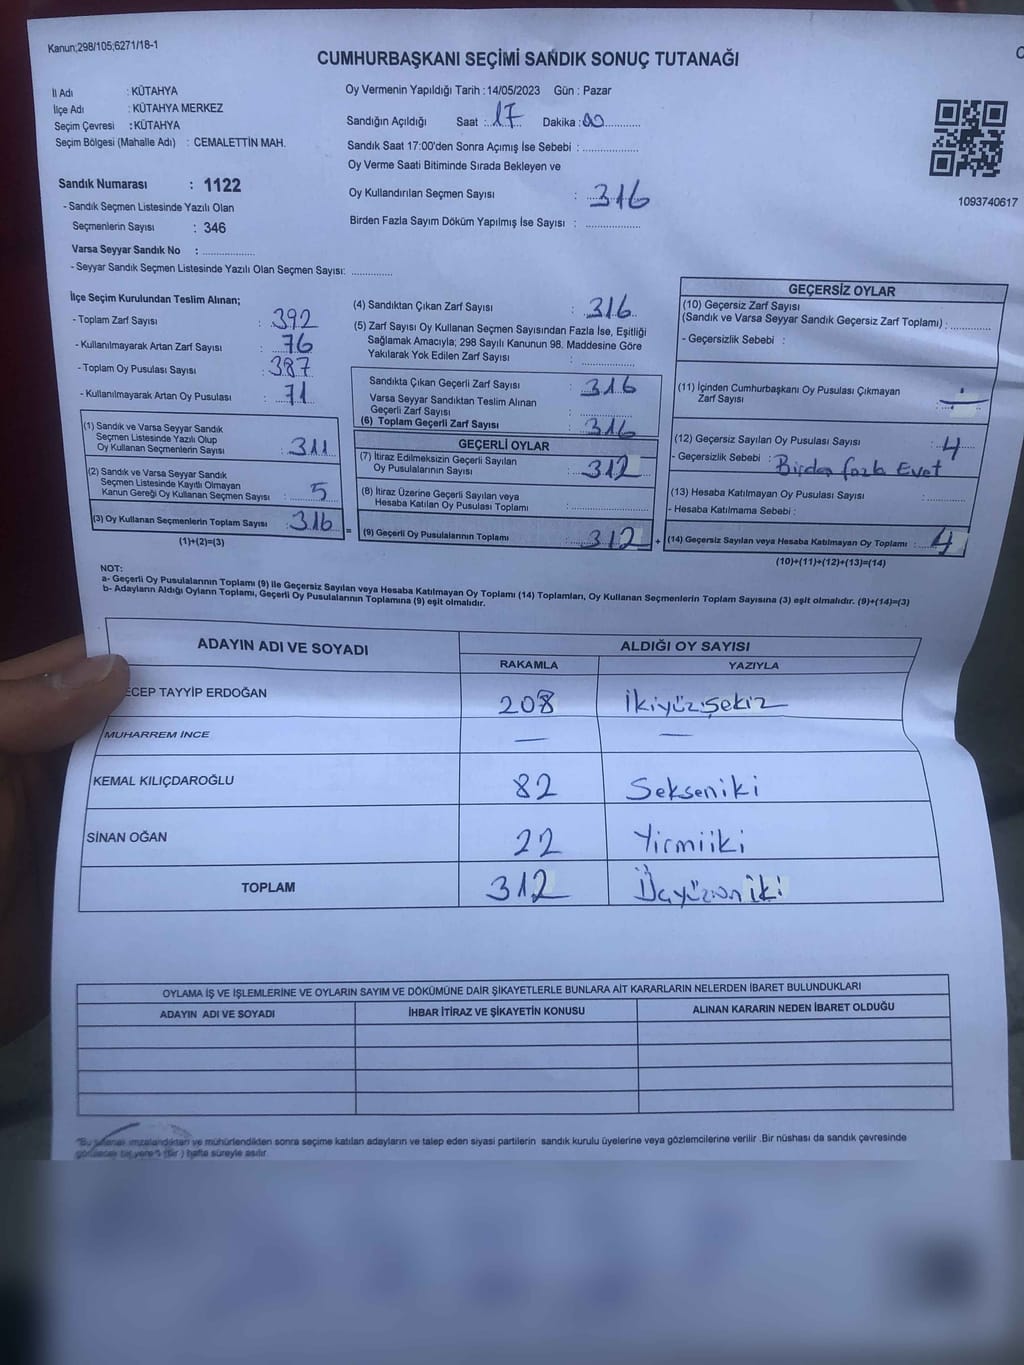 Kanun;298/105;6271/18-1
CUMHURBAŞKANI SEÇİMİ SANDIK SONUÇ TUTANAĞI
İl Adı : KÜTAHYA
İlçe Adı : KÜTAHYA MERKEZ
Seçim Çevresi : KÜTAHYA
Seçim Bölgesi (Mahalle Adı) : CEMALETTİN MAH.
Sandık Numarası : 1122
- Sandık Seçmen Listesinde Yazılı Olan
Seçmenlerin Sayısı : 346
Varsa Seyyar Sandık No : ................
- Seyyar Sandık Seçmen Listesinde Yazılı Olan Seçmen Sayısı: ............
Oy Vermenin Yapıldığı Tarih : 14/05/2023 Gün : Pazar
Sandığın Açıldığı Saat : 17 Dakika : 00
Sandık Saat 17:00'den Sonra Açımış İse Sebebi : ................
Oy Verme Saati Bitiminde Sırada Bekleyen ve
Oy Kullandırılan Seçmen Sayısı : 316
Birden Fazla Sayım Döküm Yapılmış İse Sayısı : ................
1093740617
İlçe Seçim Kurulundan Teslim Alınan;
- Toplam Zarf Sayısı : 392
- Kullanılmayarak Artan Zarf Sayısı : 76
- Toplam Oy Pusulası Sayısı : 387
- Kullanılmayarak Artan Oy Pusulası : 71
(1) Sandık ve Varsa Seyyar Sandık
Seçmen Listesinde Yazılı Olup
Oy Kullanan Seçmenlerin Sayısı : 311
(2) Sandık ve Varsa Seyyar Sandık
Seçmen Listesinde Kayıtlı Olmayan
Kanun Gereği Oy Kullanan Seçmen Sayısı : 5
(3) Oy Kullanan Seçmenlerin Toplam Sayısı : 316
(1)+(2)=(3)
(4) Sandıktan Çıkan Zarf Sayısı : 316
(5) Zarf Sayısı Oy Kullanan Seçmen Sayısından Fazla İse, Eşitliği
Sağlamak Amacıyla; 298 Sayılı Kanunun 98. Maddesine Göre
Yakılarak Yok Edilen Zarf Sayısı : ................
Sandıkta Çıkan Geçerli Zarf Sayısı : 316
Varsa Seyyar Sandıktan Teslim Alınan
Geçerli Zarf Sayısı : ................
(6) Toplam Geçerli Zarf Sayısı : 316
GEÇERLİ OYLAR
(7) İtiraz Edilmeksizin Geçerli Sayılan
Oy Pusulalarının Sayısı : 312
(8) İtiraz Üzerine Geçerli Sayılan veya
Hesaba Katılan Oy Pusulası Toplamı : ................
= (9) Geçerli Oy Pusulalarının Toplamı : 312
GEÇERSİZ OYLAR
(10) Geçersiz Zarf Sayısı
(Sandık ve Varsa Seyyar Sandık Geçersiz Zarf Toplamı) : ............
- Geçersizlik Sebebi :
(11) İçinden Cumhurbaşkanı Oy Pusulası Çıkmayan
Zarf Sayısı : —
(12) Geçersiz Sayılan Oy Pusulası Sayısı : 4
- Geçersizlik Sebebi : Birden fazla Evet
(13) Hesaba Katılmayan Oy Pusulası Sayısı : ............
- Hesaba Katılmama Sebebi :
+ (14) Geçersiz Sayılan veya Hesaba Katılmayan Oy Toplamı : 4
(10)+(11)+(12)+(13)=(14)
NOT:
a- Geçerli Oy Pusulalarının Toplamı (9) ile Geçersiz Sayılan veya Hesaba Katılmayan Oy Toplamı (14) Toplamları, Oy Kullanan Seçmenlerin Toplam Sayısına (3) eşit olmalıdır. (9)+(14)=(3)
b- Adayların Aldığı Oyların Toplamı, Geçerli Oy Pusulalarının Toplamına (9) eşit olmalıdır.
ADAYIN ADI VE SOYADI ALDIĞI OY SAYISI
RAKAMLA YAZIYLA
ECEP TAYYİP ERDOĞAN 208 İkiyüzsekiz
MUHARREM İNCE — —
KEMAL KILIÇDAROĞLU 82 Sekseniki
SİNAN OĞAN 22 Yirmiiki
TOPLAM 312 Üçyüzoniki
OYLAMA İŞ VE İŞLEMLERİNE VE OYLARIN SAYIM VE DÖKÜMÜNE DAİR ŞİKAYETLERLE BUNLARA AİT KARARLARIN NELERDEN İBARET BULUNDUKLARI
ADAYIN ADI VE SOYADI İHBAR İTİRAZ VE ŞİKAYETİN KONUSU ALINAN KARARIN NEDEN İBARET OLDUĞU
"Bu tutanak imzalandıktan ve mühürlendikten sonra seçime katılan adayların ve talep eden siyasi partilerin sandık kurulu üyelerine veya gözlemcilerine verilir .Bir nüshası da sandık çevresinde
görülecek bir yere 1 (Bir ) hafta süreyle asılır.